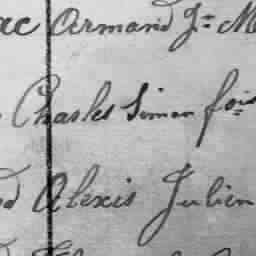 ac Armand Jn M
Charles Simon fois
d Alexis Julien